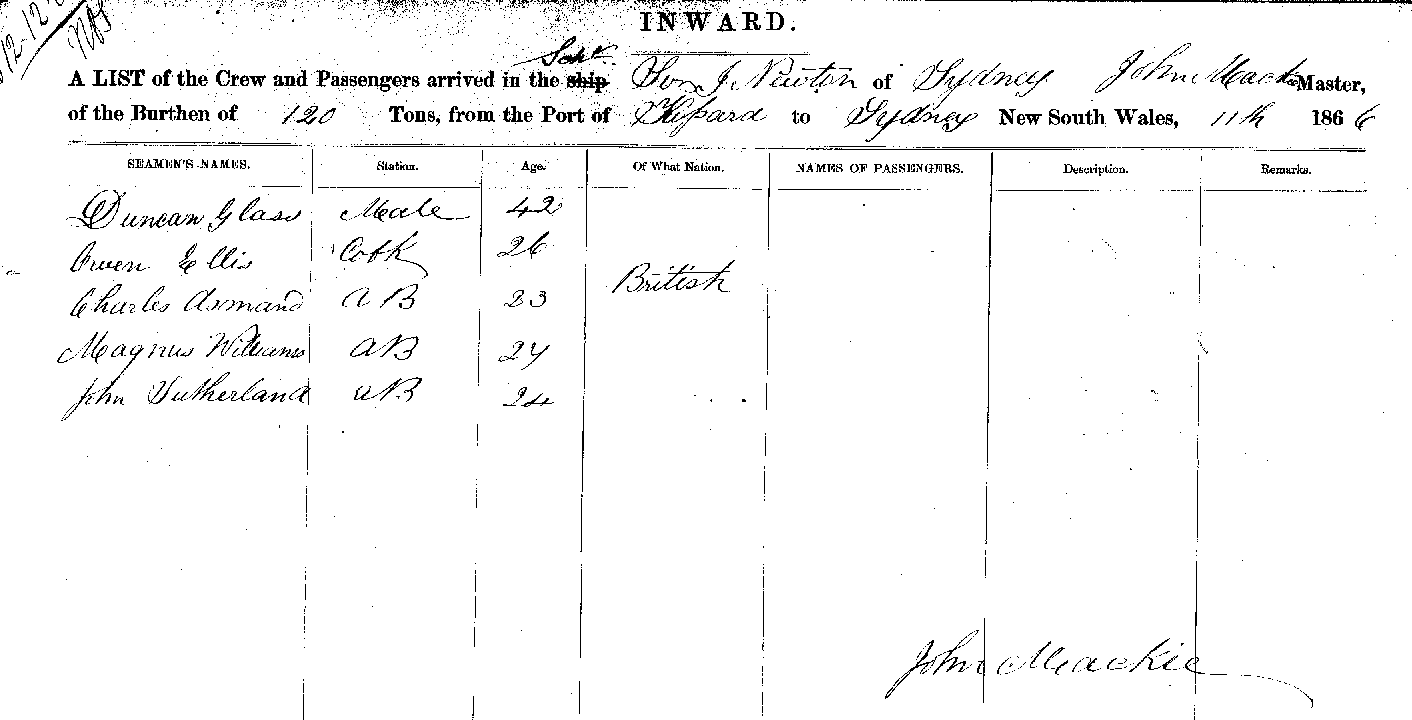 12-12-
INWARD.
Schr
A LIST of the Crew and Passengers arrived in the ship J. Newton of Sydney John Mackie Master,
of the Burthen of 120 Tons, from the Port of to Sydney New South Wales, 11th 1866
SEAMEN'S NAMES. Station. Age. Of What Nation. NAMES OF PASSENGERS. Description. Remarks.
Duncan Glass Mate 42
Owen Ellis Cook 26
British
Charles Asmand AB 23
Magnus Williams AB 24
John Sutherland AB 24
John Mackie